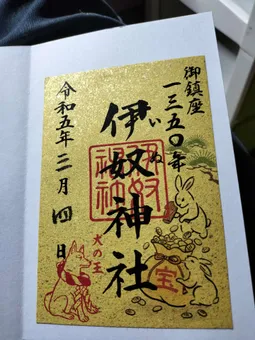 御鎮座
一三五〇年
伊奴神社
いぬ
伊奴神社
宝
令和五年二月四日
犬の王